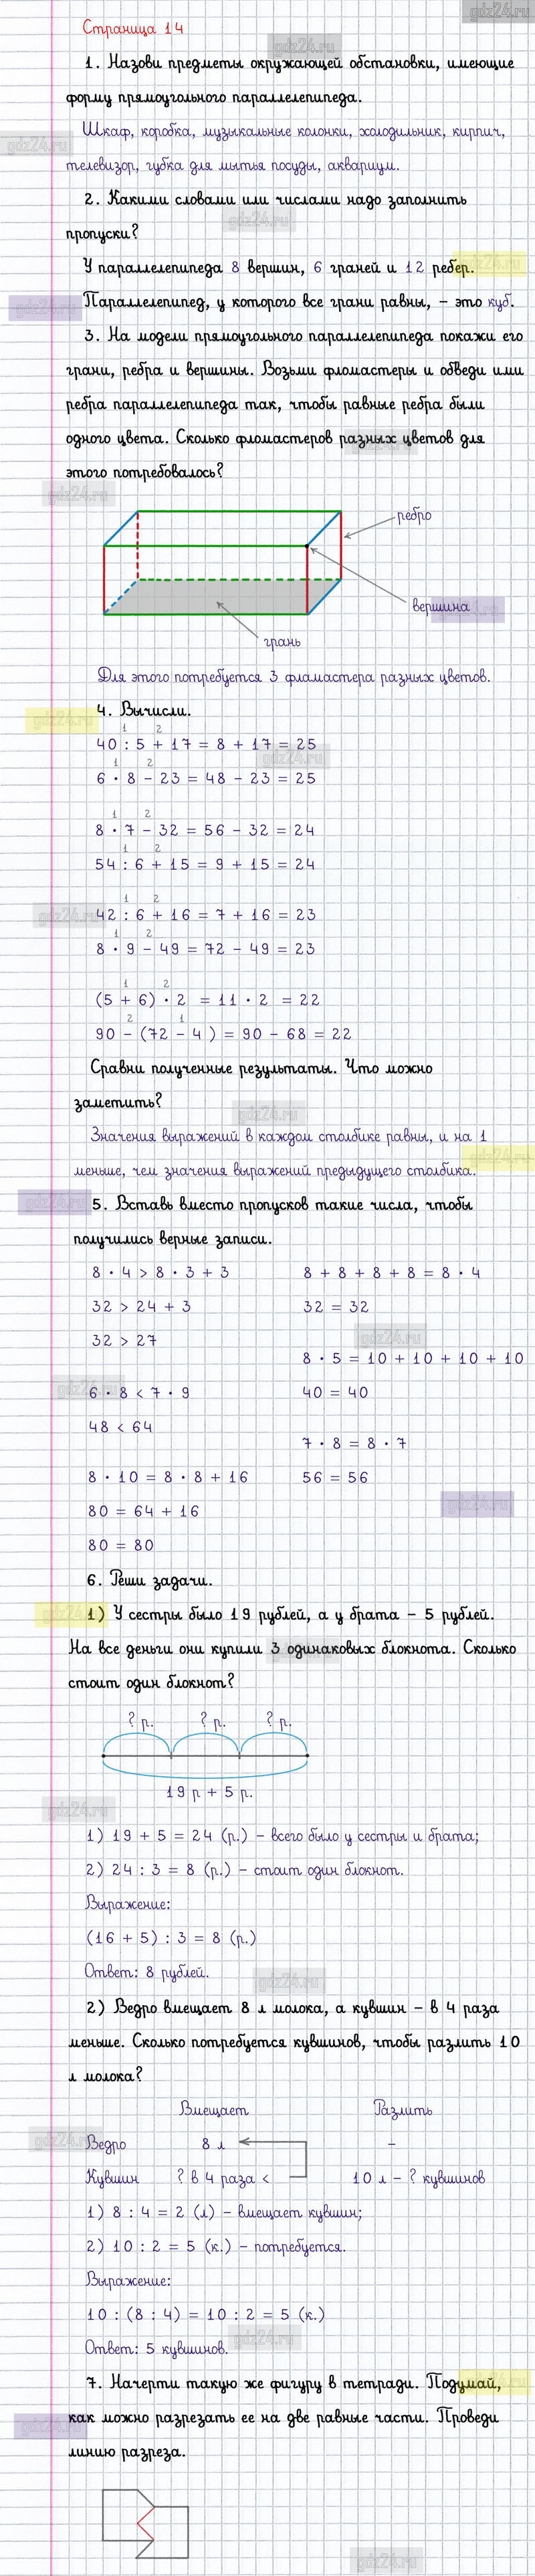 gdz24.ru
Страница 14
gdz24.ru
1. Назови предметы окружающей обстановки, имеющие
форму прямоугольного параллелепипеда.
Шкаф, коробка, музыкальные колонки, холодильник, кирпич,
gdz24.ru
телевизор, губка для мытья посуды, аквариум.
2. Какими словами или числами надо заполнить
gdz24.ru
пропуски?
У параллелепипеда 8 вершин, 6 граней и 12 ребер.
gdz24.ru
Параллелепипед, у которого все грани равны, – это куб.
gdz24.ru
3. На модели прямоугольного параллелепипеда покажи его
грани, ребра и вершины. Возьми фломастеры и обведи ими
ребра параллелепипеда так, чтобы равные ребра были
одного цвета. Сколько фломастеров разных цветов для
gdz24.ru
этого потребовалось?
gdz24.ru
ребро
вершина
gdz24.ru
грань
Для этого потребуется 3 фламастера разных цветов.
4. Вычисли.
gdz24.ru
1 2
40 : 5 + 17 = 8 + 17 = 25
gdz24.ru
1 2
6 · 8 – 23 = 48 – 23 = 25
1 2
8 · 7 – 32 = 56 – 32 = 24
1 2
54 : 6 + 15 = 9 + 15 = 24
1 2
42 : 6 + 16 = 7 + 16 = 23
gdz24.ru
1 2
8 · 9 – 49 = 72 – 49 = 23
1 2
(5 + 6) · 2 = 11 · 2 = 22
2 1
90 – (72 – 4 ) = 90 – 68 = 22
Сравни полученные результаты. Что можно
заметить?
gdz24.ru
Значения выражений в каждом столбике равны, и на 1
gdz24.ru
меньше, чем значения выражений предыдущего столбика.
gdz24.ru
5. Вставь вместо пропусков такие числа, чтобы
получились верные записи.
8 · 4 > 8 · 3 + 3
8 + 8 + 8 + 8 = 8 · 4
32 > 24 + 3
32 = 32
32 > 27
gdz24.ru
8 · 5 = 10 + 10 + 10 + 10
gdz24.ru
6 · 8 < 7 · 9
40 = 40
48 < 64
7 · 8 = 8 · 7
8 · 10 = 8 · 8 + 16
56 = 56
gdz24.ru
80 = 64 + 16
80 = 80
6. Реши задачи.
gdz24.ru
1) У сестры было 19 рублей, а у брата – 5 рублей.
На все деньги они купили 3 одинаковых блокнота. Сколько
gdz24.ru
стоит один блокнот?
? р. ? р. ? р.
19 р + 5 р.
gdz24.ru
1) 19 + 5 = 24 (р.) – всего было у сестры и брата;
2) 24 : 3 = 8 (р.) – стоит один блокнот.
Выражение:
(16 + 5) : 3 = 8 (р.)
Ответ: 8 рублей.
gdz24.ru
2) Ведро вмещает 8 л молока, а кувшин – в 4 раза
меньше. Сколько потребуется кувшинов, чтобы разлить 10
л молока?
Вмещает Разлить
gdz24.ru
Ведро 8 л –
Кувшин ? в 4 раза < 10 л – ? кувшинов
1) 8 : 4 = 2 (л) – вмещает кувшин;
2) 10 : 2 = 5 (к.) – потребуется.
Выражение:
10 : (8 : 4) = 10 : 2 = 5 (к.)
gdz24.ru
Ответ: 5 кувшинов.
7. Начерти такую же фигуру в тетради. Подумай,
gdz24.ru
как можно разрезать ее на две равные части. Проведи
gdz24.ru
линию разреза.
gdz24.ru